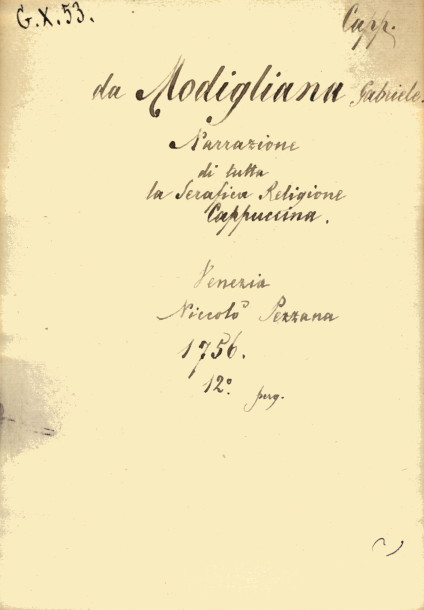 G.X.53.
Capp.
da Modigliana Gabriele.
Narrazione
di tutta
la Serafica Religione
Cappuccina.
Venezia
Niccolò Pezzana
1756.
12°. perg.